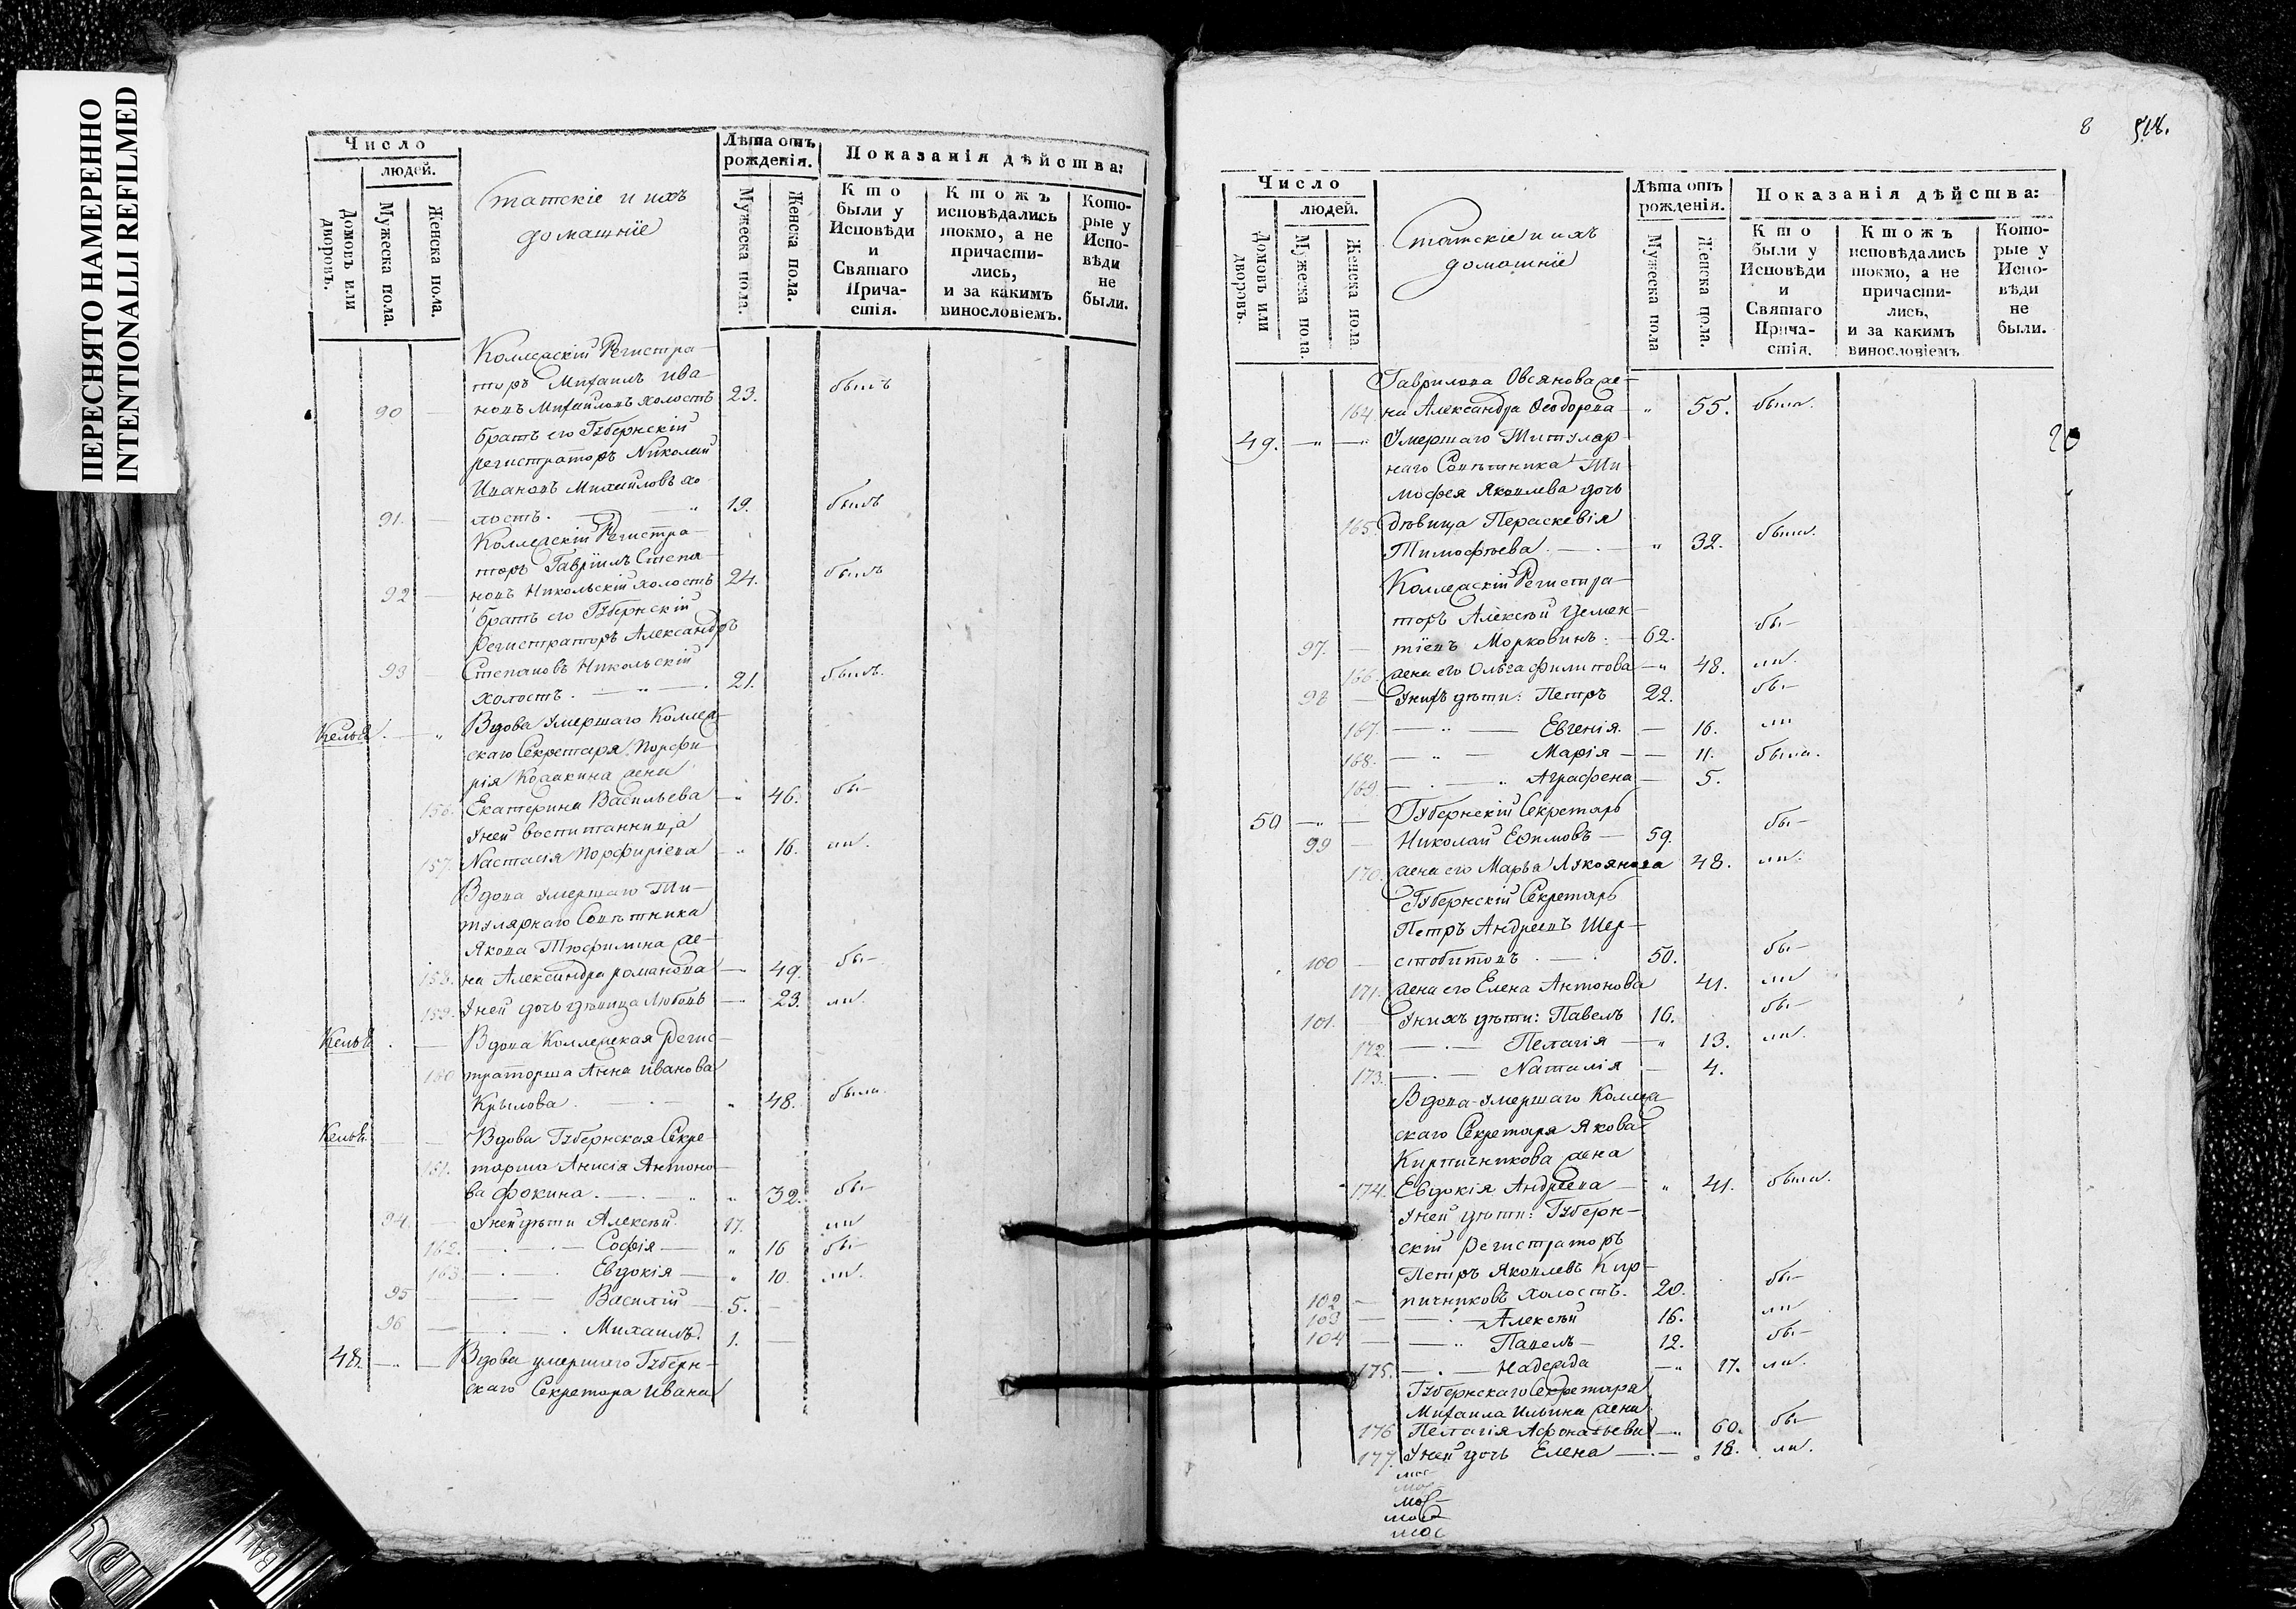 ПЕРЕСНЯТО НАМЕРЕННО
INTENTIONALLI REFILMED
Число
людей.
Домовъ или дворовъ.
Мужеска пола.
Женска пола.
Статскіе и ихъ
домашніе
Лѣта отъ
рожденія.
Мужеска пола.
Женска пола.
Показанія дѣйства:
Кто
были у
Исповѣди
и
Святаго
Прича-
стія.
Ктожъ
исповѣдались
токмо, а не
причасти-
лись,
и за какимъ
винословіемъ.
Кото-
рые у
Испо-
вѣди
не
были.
Коллежскій Регистра-
торъ Михаилъ Ива-
90 — новъ Михаиловъ холостъ 23. былъ
братъ его Губернскій
регистраторъ Николай
Ивановъ Михаиловъ хо
91. — лостъ. — „ 19. былъ
Коллежскій Регистра-
торъ Гавріилъ Степа
92 — новъ Никольскій холостъ 24. былъ
братъ его Губернскій
Регистраторъ Александръ
93 — Степановъ Никольскій
холостъ. — „ — . 21. былъ.
Келья. — „ Вдова умершаго Коллеж-
скаго Секретаря Порфи-
рія жена
156. Екатерина Васильева — „ 46. бы-
Уней воспитанница
157. Настасія Порфиріева — „ 16. ли.
Вдова умершаго Ти-
тулярнаго Совѣтника
Якова же-
158. на Александра романова — 49. бы-
159. Уней дочь дѣвица Любовь — „ 23. ли.
Келья. — Вдова Коллежская Регис-
160 траторша Анна Иванова
Крылова. — . — „ 48. была.
Келья. — — Вдова Губернская Секре-
161. тарша Анисія Антоно-
ва Фокина. — . — „ „ 32. бы-
94. — Уней дѣти Алексѣй. 17. ли
162. — . — . — Софія — „ 16 бы-
163. — . — . Евдокія — „ 10. ли.
95 — — — Василій — 5. —
96 — — . — . Михаилъ. 1. —
48. — „ — Вдова умершаго Губерн-
скаго Секретаря Ивана
8 518.
Число
людей.
Домовъ или дворовъ.
Мужеска пола.
Женска пола.
Статскіе и ихъ
домашніе
Лѣта отъ
рожденія.
Мужеска пола
Женска пола.
Показанія дѣйства:
Кто
были у
Исповѣди
и
Святаго
Прича-
стія.
Ктожъ
исповѣдались
токмо, а не
причасти-
лись,
и за какимъ
винословіемъ
Кото-
рые у
Испо-
вѣди
не
были.
Гаврилова Овсянова же-
164. на Александра Ѳеодорова — „ 55. была.
49. — „ — „ Умершаго Титуляр-
наго Совѣтника Ти-
мофея Яковлева дочь
165. дѣвица Пераскевія
Тимофѣева. — . — „ 32. была.
Коллежскій Регистра-
торъ Алексѣй Цемен-
97. — тіевъ Морковинъ: — 62. бы-
166. жена его Ольга Филипова — „ 48. ли.
98 — Унихъ дѣти: Петръ 22. бы-
167. — „ — Евгенія. — 16. ли
168. — „ — Марія — — 11. была.
169 — . — „ Аграфена — 5.
50 — „ — Губернскій Секретарь
99 — Николай Ефимовъ — 59. бы-
170. жена его Марья Лукоянова 48. ли.
Губернскій Секретарь
Петръ Андреевъ Шер-
100 — стобитовъ. — . 50. бы-
171. жена его Елена Антонова 41. ли
101. — Унихъ дѣти: Павелъ 16. бы-
172. — . — Пелагія — „ 13. ли.
173. — . — Наталія — 4.
Вдова умершаго Коллеж-
скаго Секретаря Якова
Кирпичникова жена
174. Евдокія Андреева — „ 41. была.
Уней дѣти: Губерн-
скій Регистраторъ
Петръ Яковлевъ Кир-
102 — пичниковъ холостъ. 20. бы-
103 — — . — Алексѣй 16. ли
104 — — „ Павелъ — 12. бы-
175. — . — Надежда — „ 17. ли.
Губернскаго Секретаря
Михаила Ильина жена
176 Пелагія Афонасьева — „ 60. бы-
177. Уней дочь Елена — . — „ 18. ли.